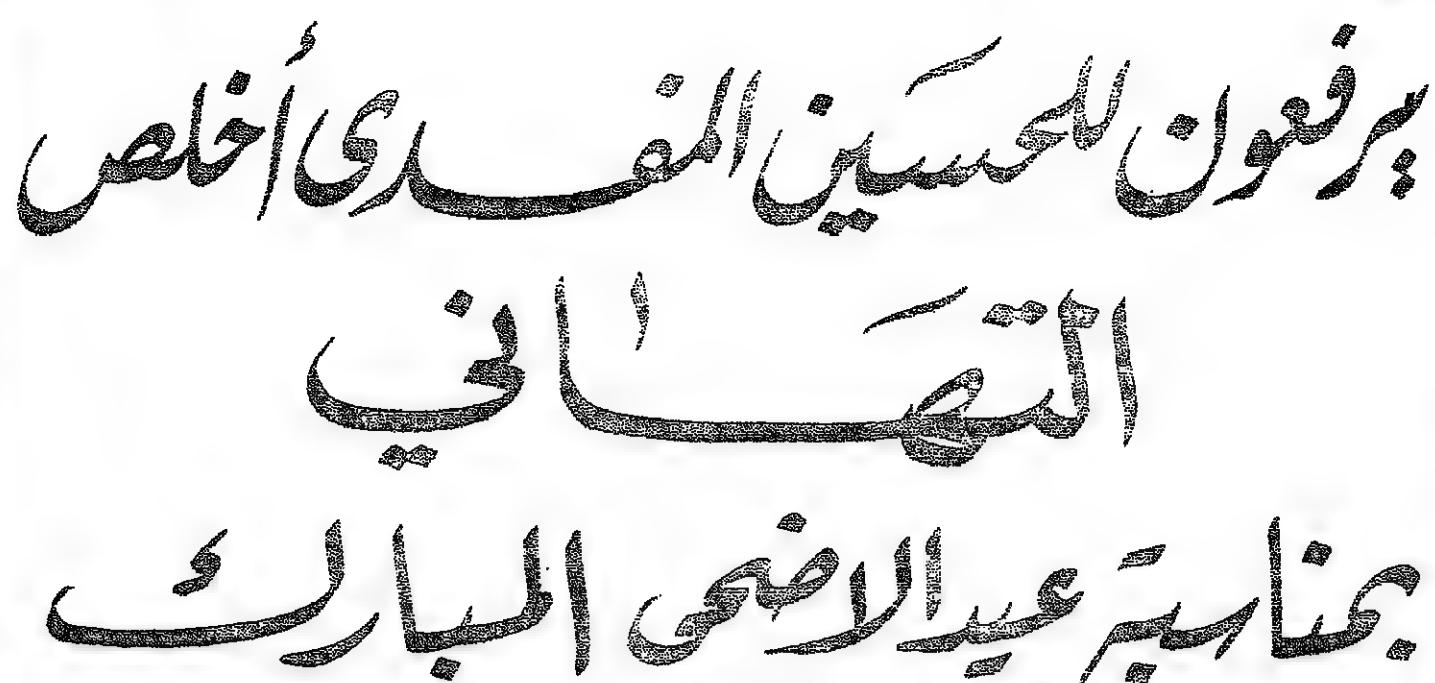 يرفعون للحسَين المفدى أخلص
التهَاني
بمناسبة عيد الاضحى المبارك